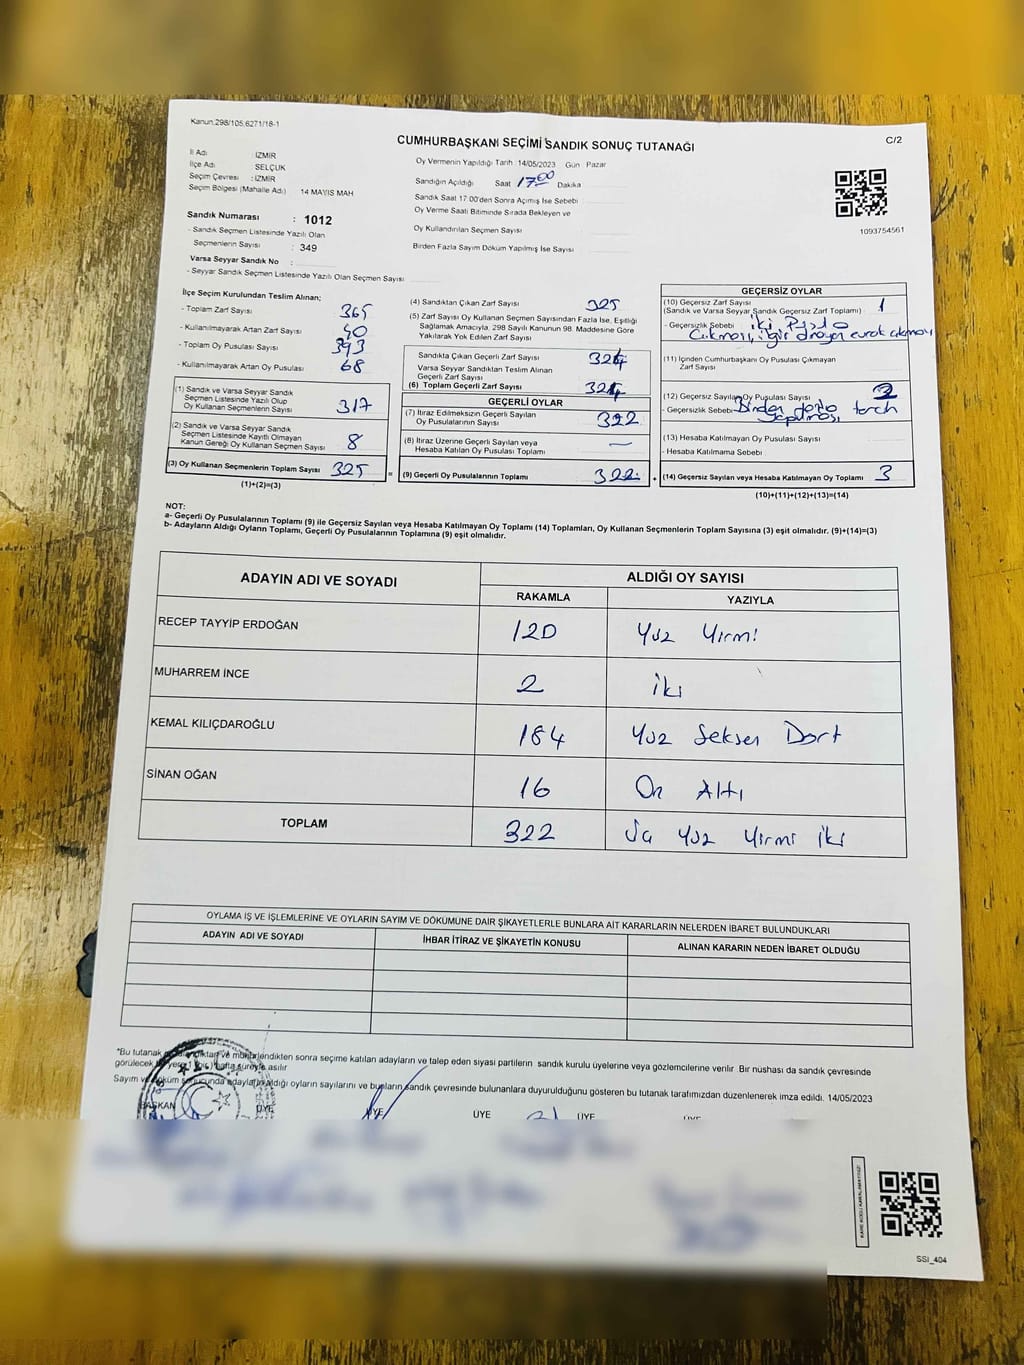 Kanun.298/105.6271/18-1
C/2
CUMHURBAŞKANI SEÇİMİ SANDIK SONUÇ TUTANAĞI
İl Adı : İZMİR
İlçe Adı : SELÇUK
Seçim Çevresi : İZMİR
Seçim Bölgesi (Mahalle Adı) 14 MAYIS MAH
Sandık Numarası : 1012
- Sandık Seçmen Listesinde Yazılı Olan
Seçmenlerin Sayısı : 349
Varsa Seyyar Sandık No :
- Seyyar Sandık Seçmen Listesinde Yazılı Olan Seçmen Sayısı
Oy Vermenin Yapıldığı Tarih :14/05/2023 Gün : Pazar
Sandığın Açıldığı Saat 17:00 Dakika
Sandık Saat 17:00'den Sonra Açımış İse Sebebi
Oy Verme Saati Bitiminde Sırada Bekleyen ve
Oy Kullandırılan Seçmen Sayısı
Birden Fazla Sayım Döküm Yapılmış İse Sayısı
1093754561
İlçe Seçim Kurulundan Teslim Alınan;
- Toplam Zarf Sayısı 365
- Kullanılmayarak Artan Zarf Sayısı 40
- Toplam Oy Pusulası Sayısı 393
- Kullanılmayarak Artan Oy Pusulası 68
(1) Sandık ve Varsa Seyyar Sandık
Seçmen Listesinde Yazılı Olup
Oy Kullanan Seçmenlerin Sayısı 317
(2) Sandık ve Varsa Seyyar Sandık
Seçmen Listesinde Kayıtlı Olmayan
Kanun Gereği Oy Kullanan Seçmen Sayısı 8
(3) Oy Kullanan Seçmenlerin Toplam Sayısı 325
(1)+(2)=(3)
(4) Sandıktan Çıkan Zarf Sayısı 325
(5) Zarf Sayısı Oy Kullanan Seçmen Sayısından Fazla İse, Eşitliği
Sağlamak Amacıyla, 298 Sayılı Kanunun 98. Maddesine Göre
Yakılarak Yok Edilen Zarf Sayısı
Sandıkta Çıkan Geçerli Zarf Sayısı 324
Varsa Seyyar Sandıktan Teslim Alınan
Geçerli Zarf Sayısı
(6) Toplam Geçerli Zarf Sayısı 324
GEÇERLİ OYLAR
(7) İtiraz Edilmeksizin Geçerli Sayılan
Oy Pusulalarının Sayısı 322
(8) İtiraz Üzerine Geçerli Sayılan veya
Hesaba Katılan Oy Pusulası Toplamı —
= (9) Geçerli Oy Pusulalarının Toplamı 322
GEÇERSİZ OYLAR
(10) Geçersiz Zarf Sayısı
(Sandık ve Varsa Seyyar Sandık Geçersiz Zarf Toplamı) : 1
- Geçersizlik Sebebi iki Pusla
Çıkması,
(11) İçinden Cumhurbaşkanı Oy Pusulası Çıkmayan
Zarf Sayısı
(12) Geçersiz Sayılan Oy Pusulası Sayısı 2
- Geçersizlik Sebebi Birden fazla tercih
yapılması
(13) Hesaba Katılmayan Oy Pusulası Sayısı
- Hesaba Katılmama Sebebi
+ (14) Geçersiz Sayılan veya Hesaba Katılmayan Oy Toplamı 3
(10)+(11)+(12)+(13)=(14)
NOT:
a- Geçerli Oy Pusulalarının Toplamı (9) ile Geçersiz Sayılan veya Hesaba Katılmayan Oy Toplamı (14) Toplamları, Oy Kullanan Seçmenlerin Toplam Sayısına (3) eşit olmalıdır. (9)+(14)=(3)
b- Adayların Aldığı Oyların Toplamı, Geçerli Oy Pusulalarının Toplamına (9) eşit olmalıdır.
ADAYIN ADI VE SOYADI
ALDIĞI OY SAYISI
RAKAMLA YAZIYLA
RECEP TAYYİP ERDOĞAN 120 Yüz Yirmi
MUHARREM İNCE 2 iki
KEMAL KILIÇDAROĞLU 184 Yüz Seksen Dört
SİNAN OĞAN 16 On Altı
TOPLAM 322 Üç Yüz Yirmi iki
OYLAMA İŞ VE İŞLEMLERİNE VE OYLARIN SAYIM VE DÖKÜMÜNE DAİR ŞİKAYETLERLE BUNLARA AİT KARARLARIN NELERDEN İBARET BULUNDUKLARI
ADAYIN ADI VE SOYADI İHBAR İTİRAZ VE ŞİKAYETİN KONUSU ALINAN KARARIN NEDEN İBARET OLDUĞU
*Bu tutanak ve mühürlendikten sonra seçime katılan adayların ve talep eden siyasi partilerin sandık kurulu üyelerine veya gözlemcilerine verilir. Bir nüshası da sandık çevresinde
görülecek bir yere 1 (bir) hafta süreyle asılır
Sayım ve döküm sonucunda adayların aldığı oyların sayılarını ve bunların sandık çevresinde bulunanlara duyurulduğunu gösteren bu tutanak tarafımızdan düzenlenerek imza edildi. 14/05/2023
BAŞKAN ÜYE ÜYE ÜYE ÜYE ÜYE
SSİ_404